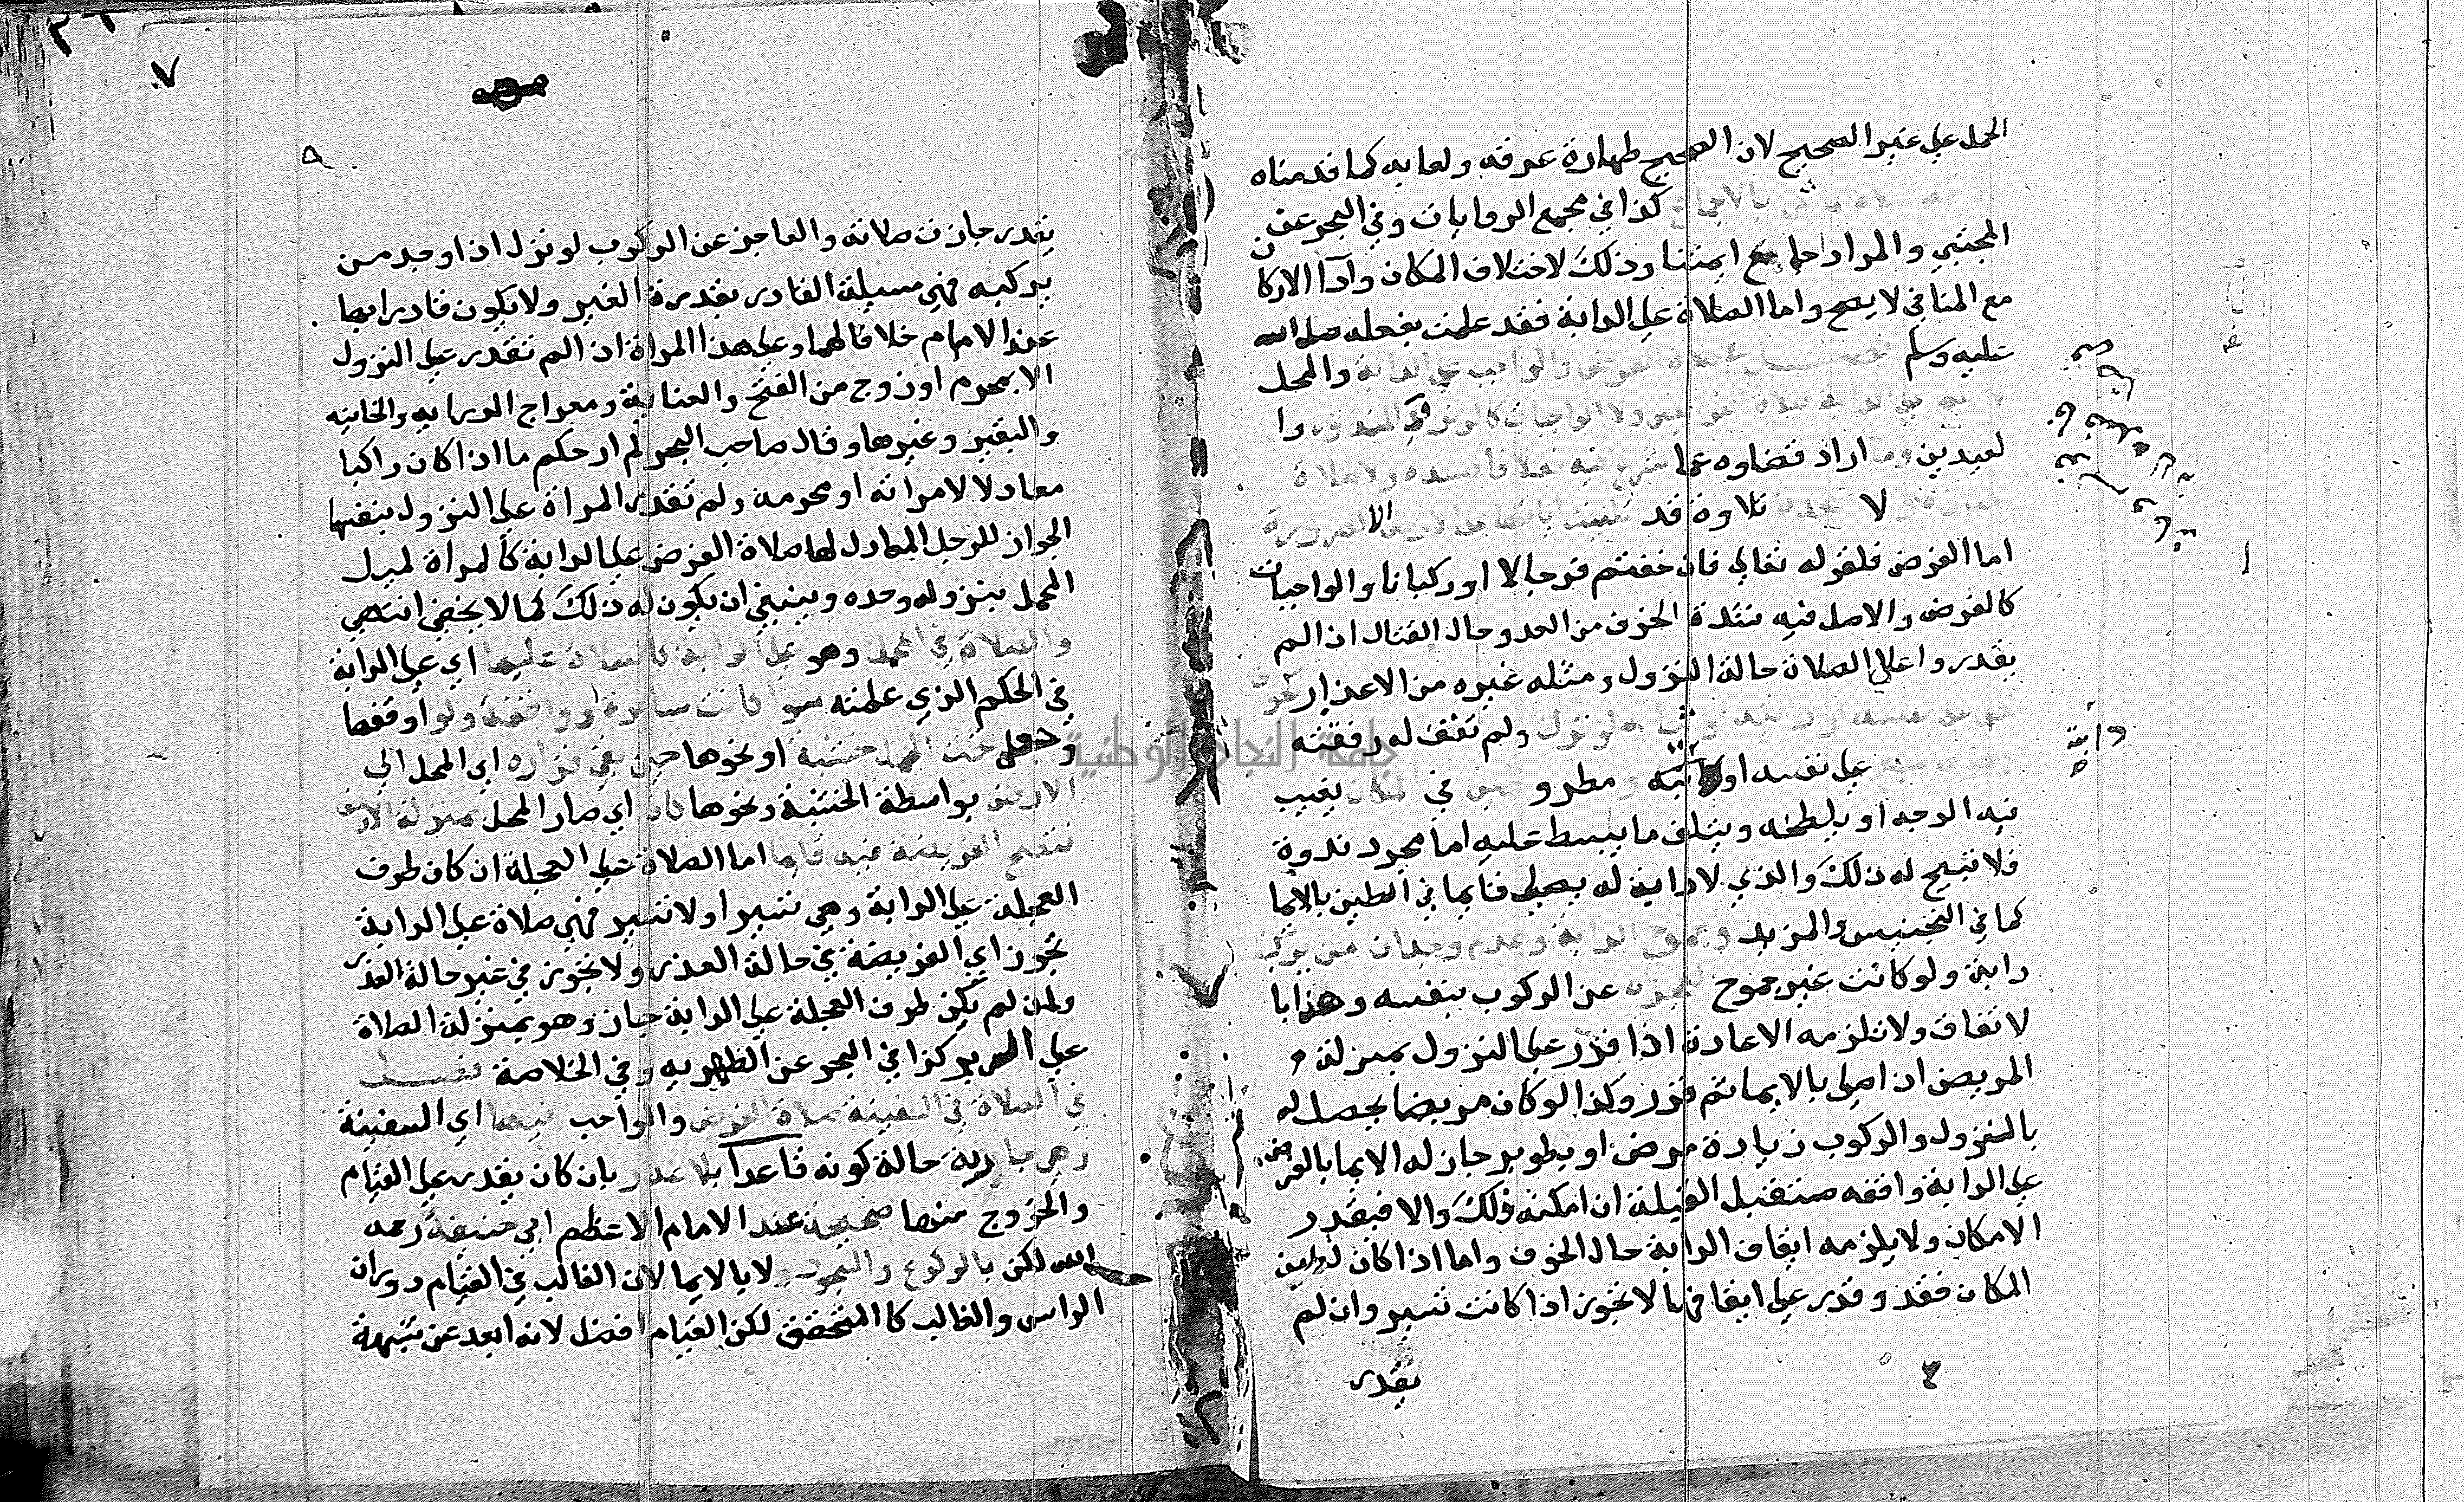 الحمل علي غير الصحيح لان الصحيح طهارة عرقه ولعابه كما قدمناه
بالاجماع كذا في مجمع الروايات وفي البحر عن
المجتبي والمراد جامع ايمتنا وذلك لاختلاف المكان وادا الاركان
مع المنافي لا يصح واما الصلاة علي الدابة فقد علمت بفعله صلي الله
عليه وسلم فصل في صلاة الفرض والواجب علي الدابة والمحمل
لا يصح علي الدابة صلاة الفرايض ولا الواجبات كالوتر والمنذور وا
لعيدين وما اراد قضاوه مما شرع فيه نفلا فافسده ولا صلاة
جنازة ولا سجدة تلاوة قد تليت اياتها علي الارض الا لضرورة
اما الفرض فلقوله تعالي فان خفتم فرجالا او ركبانا والواجبات
كالفرض والاصل فيه شدة الخوف من العدو حال القتال اذا لم
يقدروا علي الصلاة حالة النزول ومثله غيره من الاعذار كخوف
لص علي نفسه او دابته او ثيابه لو نزل ولم تقف له رفقته
وخوف سبع علي نفسه او دابته ومطر وطين في المكان يغيب
فيه الوجه او يلطخه ويتلف ما يبسط عليه اما مجرد ندوة
فلا تبيح له ذلك والذي لا دابة له يصلي قايما في الطين بالايما
كما في التجنيس والمزيد وجموح الدابة وعدم وجدان من يركبه
دابة ولو كانت غير جموح لعجزه عن الركوب بنفسه وهذا با
لاتفاق ولا تلزمه الاعادة اذا قدر علي النزول بمنزلة
المريض اذا صلي بالايما ثم قدر وكذا لو كان مريضا يحصل له
بالنزول والركوب زيادة مرض او بطو بر جاز له الايما بالفرض
علي الدابة واقفه مستقبل القبلة ان امكنه ذلك والا فبقدر
الامكان ولا يلزمه ايقاف الدابة حال الخوف واما اذا كان لطين
المكان فقد وقدر علي ايقافها لا تجوز اذا كانت تسير وان لم
يقدر
دابة
٧
يقدر جازت صلاته والعاجز عن الركوب لو نزل اذا وجد من
يركبه فهي مسيلة القادر بقدرة الغير ولا يكون قادرا بها
عند الامام خلافا لهما وعلي هذا المراة اذا لم تقدر علي النزول
الا بمحرم او زوج من الفتح والعناية ومعراج الدراية والخانيه
والتقرير وغيرها وقال صاحب البحر لم ار حكم ما اذا كان راكبا
معادلا لامراته او محرمه ولم تقدر المراة علي النزول بنفسها
الجواز للرجل المعادل لها صلاة الفرض علي الدابة كالمراة لميل
المحمل بنزوله وحده وينبغي ان يكون له ذلك كما لا يخفي انتهي
والصلاة في المحمل وهو علي الدابة كالصلاة عليها اي علي الدابة
في الحكم الذي علمته سوا كانت سايرة او واقفة ولو اوقفها
وجعل تحت المحمل خشبة او نحوها حتي بقي قراره اي المحمل الي
الارض بواسطة الخشبة ونحوها كان اي صار المحمل بمنزلة الارض
فتصح الفريضة فيه قايما اما الصلاة علي العجلة ان كان طرف
العجلة علي الدابة وهي تسير او لا تسير فهي صلاة علي الدابة
تجوز اي الفريضة في حالة العذر ولا تجوز في غير حالة العذر
وان لم يكن طرف العجلة علي الدابة جاز وهو بمنزلة الصلاة
علي السرير كذا في البحر عن الظهريه وفي الخلاصة فصل
في الصلاة في السفينة صلاة الفرض والواجب فيها اي السفينة
وهي جارية حالة كونه قاعدا بلا عذر بان كان يقدر علي القيام
والخروج منها صحيحة عند الامام الاعظم ابي حنيفة رحمه
الله لكن بالركوع والسجود ولا بالايما لان الغالب في القيام دوران
الراس والغالب كالمتحقق لكن القيام افضل لانه ابعد عن شبهة